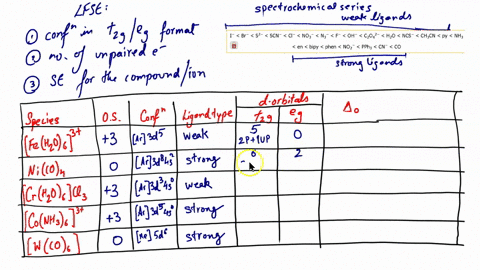 LFSE:
① confⁿ in t₂g/eg format
② no. of unpaired e⁻
③ SE for the compound/ion
spectrochemical series
weak ligands
I⁻ < Br⁻ < S²⁻ < SCN⁻ < Cl⁻ < NO₃⁻ < N₃⁻ < F⁻ < OH⁻ < C₂O₄²⁻ < H₂O < NCS⁻ < CH₃CN < py < NH₃
< en < bipy < phen < NO₂⁻ < PPh₃ < CN⁻ < CO
strong ligands
d-orbitals
Species O.S. Confⁿ Ligand type t₂g eg Δo
[Fe(H₂O)₆]³⁺ +3 [Ar]3d⁵ weak 5 0
2P+1UP
Ni(CO)₄ 0 [Ar]3d⁸4s² strong 6 2
[Cr(H₂O)₆]Cl₃ +3 [Ar]3d³4s⁰ weak
[Co(NH₃)₆]³⁺ +3 [Ar]3d⁵4s⁰ strong
[W(CO)₆] 0 [Xe]5d⁶ strong